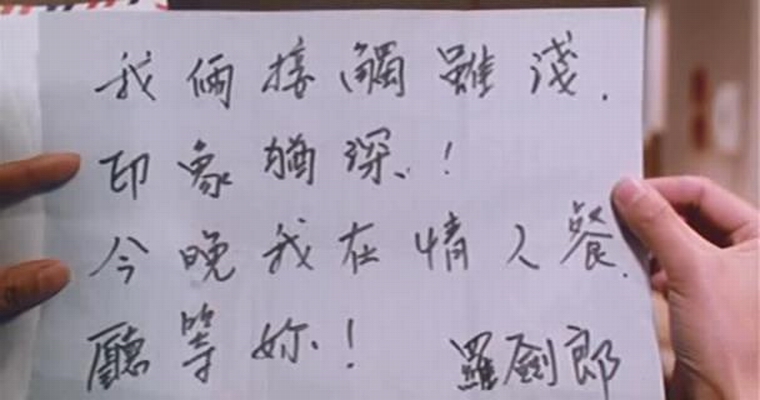 我倆接觸雖淺.
印象猶深、!
今晚我在情人餐.
廳等妳!　羅劍郎